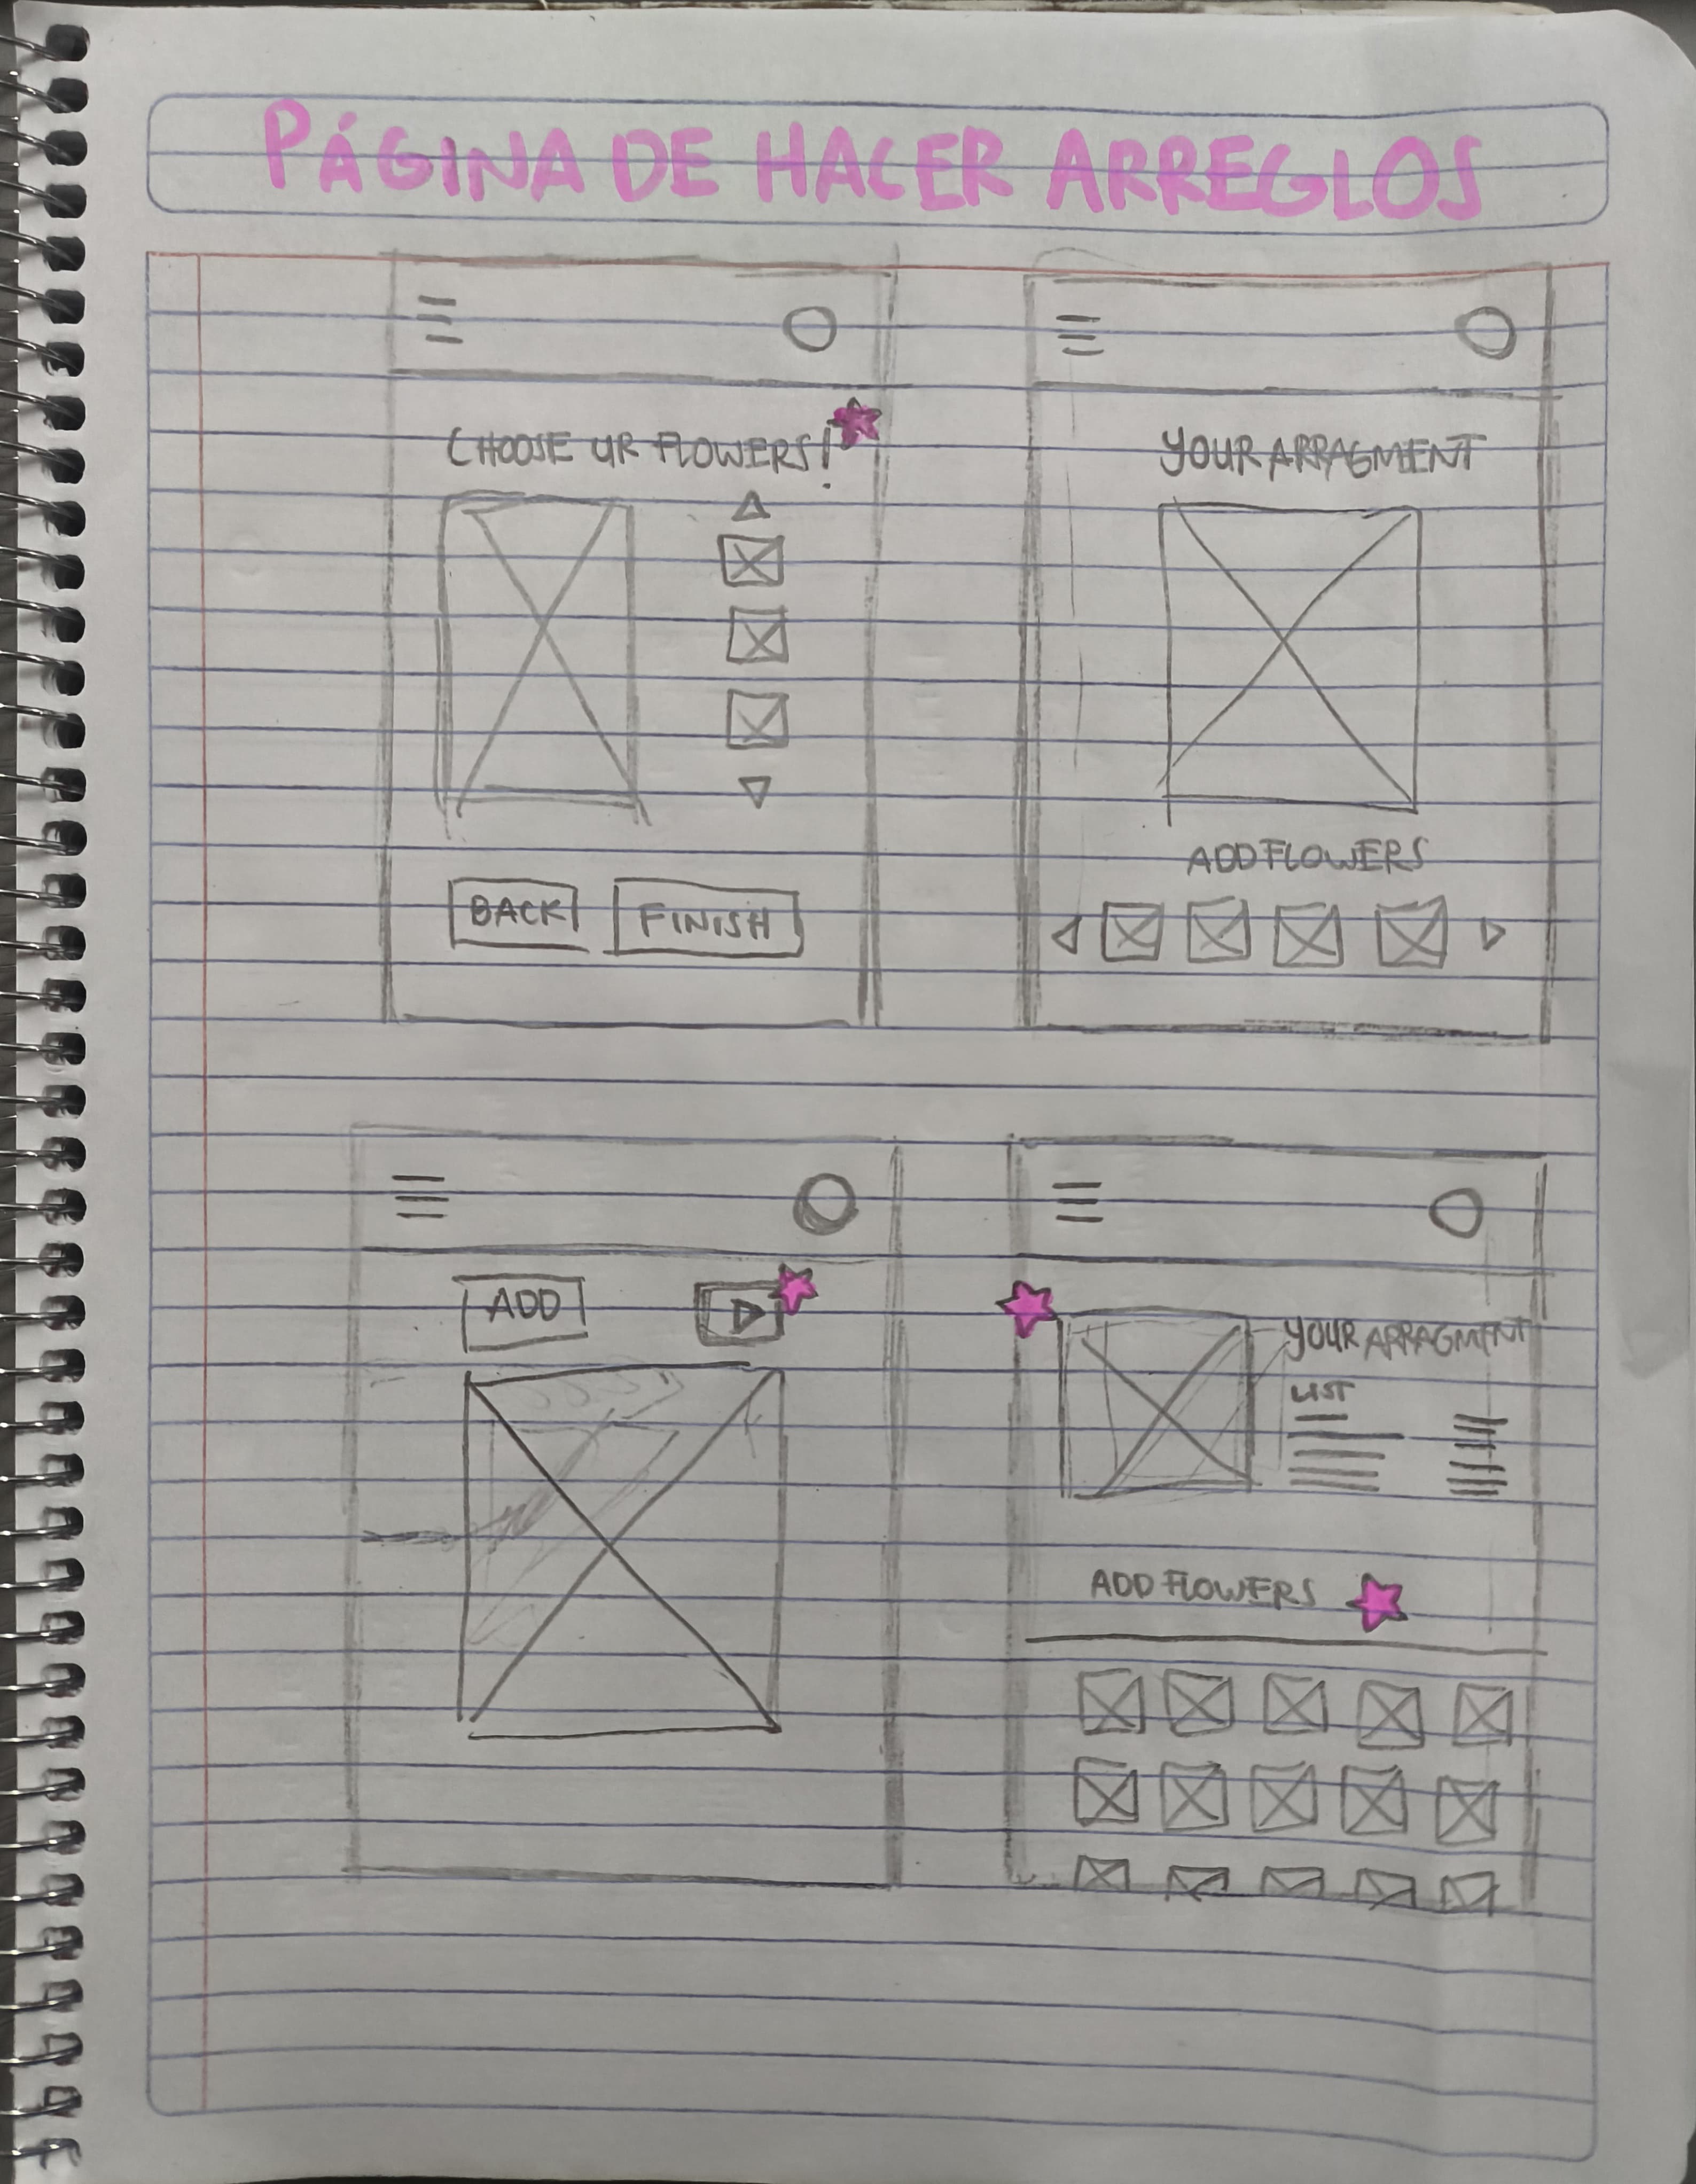 PÁGINA DE HACER ARREGLOS
CHOOSE UR FLOWERS!
BACK
FINISH
YOUR ARRAGMENT
ADD FLOWERS
ADD
YOUR ARRAGMENT
LIST
ADD FLOWERS